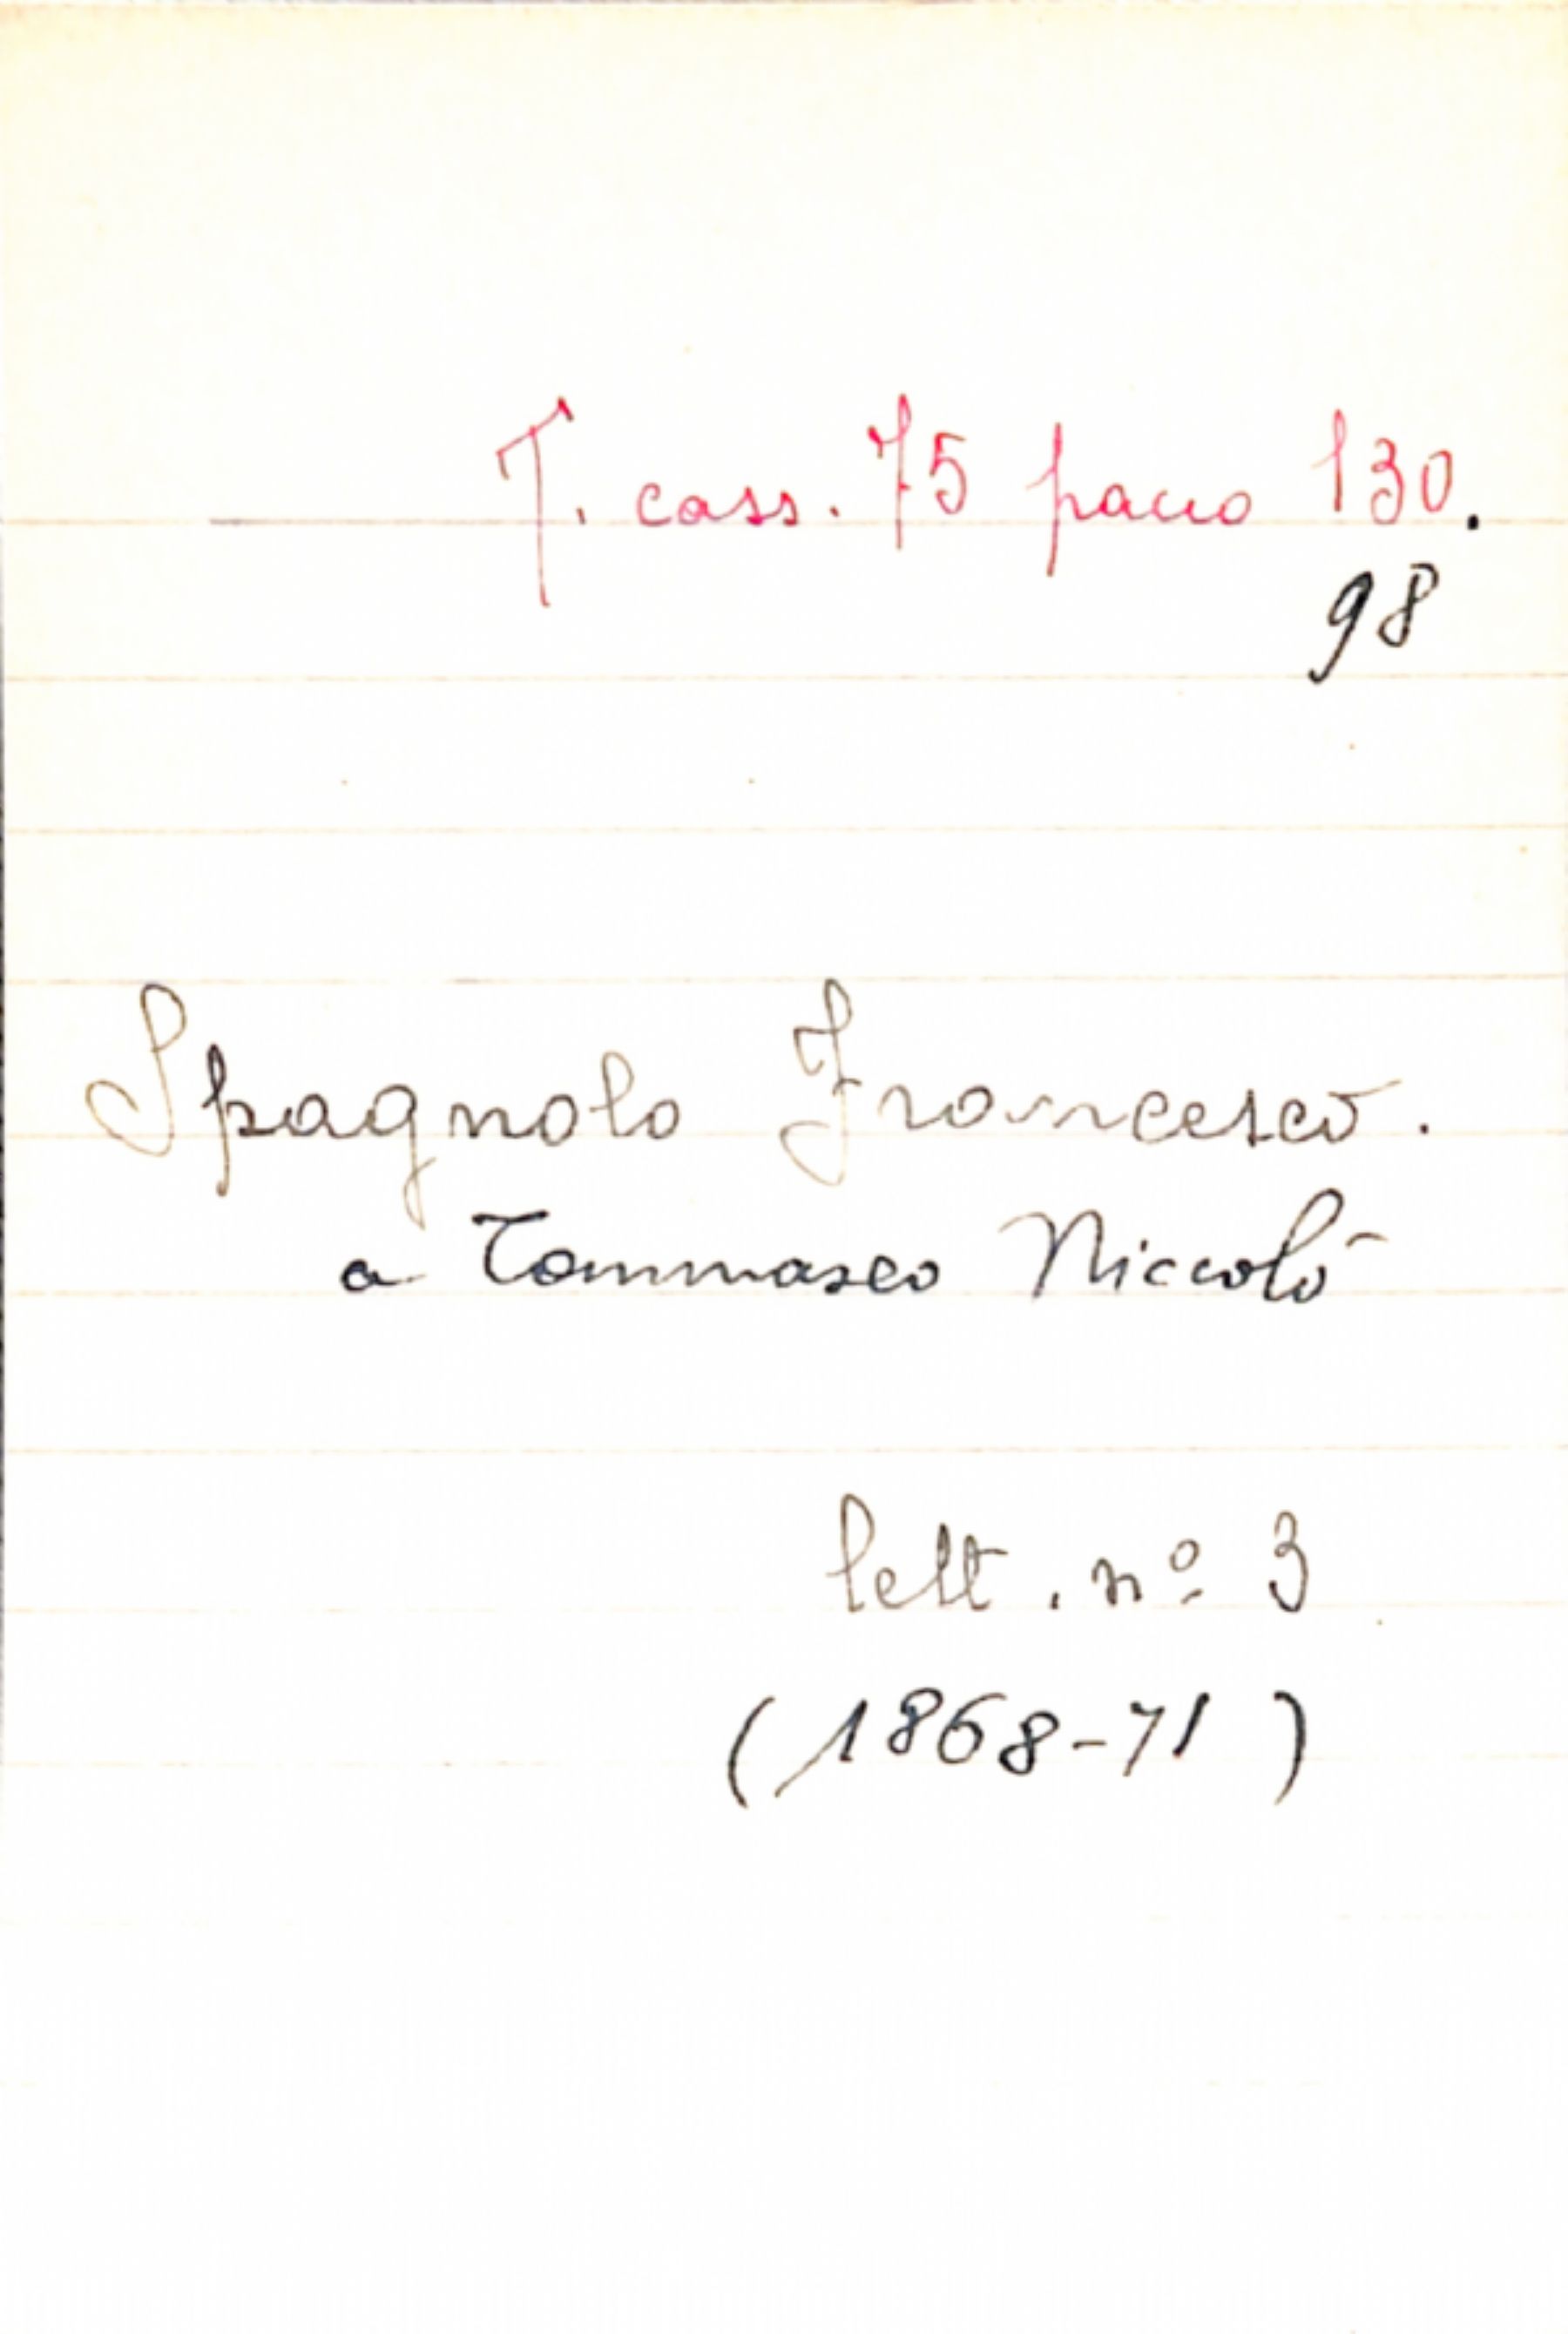 T. cass. 75 pacco 130.
98
Spagnolo Francesco.
a Tommaseo Niccolò
lett. nº 3
(1868-71)